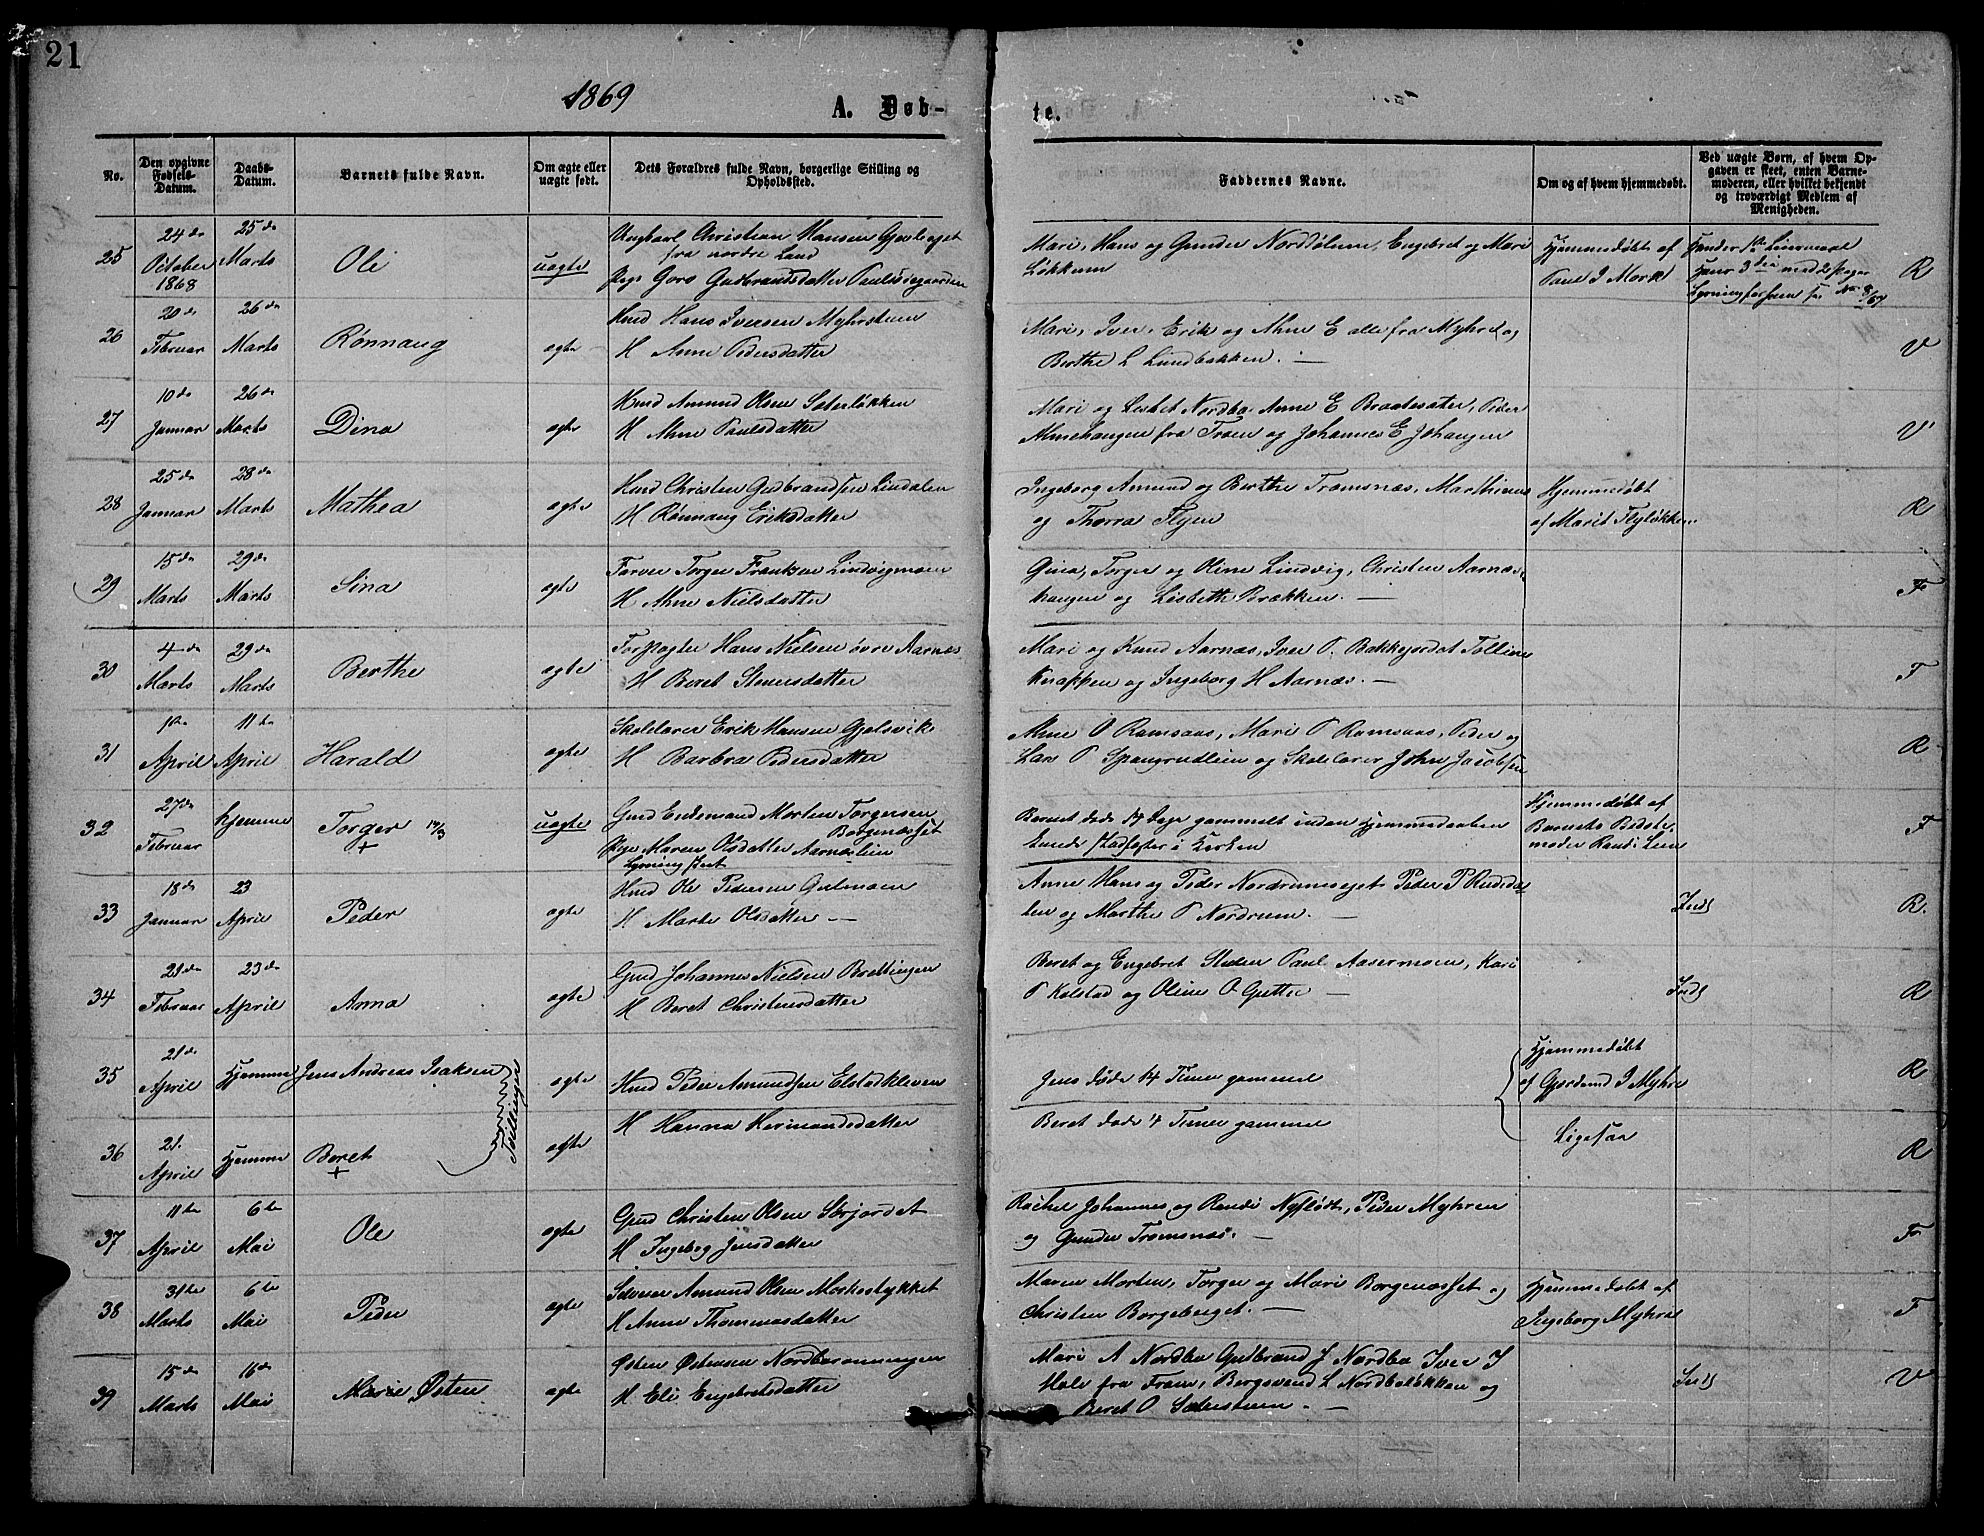 21
1869
A. Døb-
te.
No.
Den opgivne Fødsels-Datum.
Daabs-Datum.
Barnets fulde Navn.
Om ægte eller uægte født.
Dets Forældres fulde Navn, borgerlige Stilling og Opholdssted.
Faddernes Navne.
Om og af hvem hjemmedøbt.
Ved uægte Børn, af hvem Op-
gaven er skeet, enten Barne-
moderen, eller hvilket bekjendt
og troværdigt Medlem af
Menigheden.
25 24de October 1868 25de Marts Ole uægte
Ungkarl Christian Hansen
fra nordre Land
Pige Goro Gudbrandsdatter
Mari, Hans og Gunder Engebret og Mari
Løkkum
Hjemmedøbt af
Paul J Mork
R
26 20de Februar 26de Marts Rønnaug ægte
Hmd Hans Iversen Myhrstuen
H Anne Pedersdatter
Mari, Iver, Erik og Ahne E alle fra Myhre og
Berthe L Lundbakken. —
V
27 10de Januar 26de Marts Dina ægte
Hmd Amund Olsen Sæterløkken
H Ahne Paulsdatter
Mari og Lisbet Nordbø Anne E Braatesæter, Peder
Ahnehaugen fra Troen og Johannes E Johaugen
V
28 25de Januar 28de Marts Mathea ægte
Hmd Christen Gudbrandsen Lindalen
H Rønnaug Eriksdatter
Ingeborg Amund og Berthe Tromsnæs, Marthinus
og Thorra Flyen
Hjemmedøbt
af Marit Flyløkken
R
29 15de Marts 29de Marts Sina ægte
Farver Torger Frantsen Lindvigmoen
H Ahne Nielsdatter
Gina, Torger og Oline Lindvig, Christen Aarnæs-
haugen og Lisbeth Brækken. —
F
30 4de Marts 29de Marts Berthe ægte
Forpagter Hans Nielsen øvre Aarnæs
H Beret Steuersdatter
Mari og Knud Aarnæs, Iver P. Bakkejordet
Knappen og Ingeborg H Aarnæs. —
F
31 1ste April 11de April Harald ægte
Skolelærer Erik Hansen Gjelsvik
H Barbra Pedersdatter
Ahne O Ramsaas, Mari P Ramsaas, Peder og
Lars P Spangrudlien og Skolelærer John Jacobsen
R
32 27de Februar hjemme Torger + uægte
Gmd Morten Torgersen
Borgenæsset
Pige Maren Olsdatter Aarnæslien
Lysning skeet
Barnet døde 14 Dage gammelt inden Hjemmedaaben
kunde stadfæstes i Kirken
Hjemmedøbt af
Barnets Bedste-
moder Randi Lien
F
33 18de Januar 23 April Peder ægte
Hmd Ole Pedersen
H Marte Olsdatter —
Anne Hans og Peder Nordrumseget Peder P
og Marthe P Nordrum. —
Inds
R.
34 21de Februar 23de April Anna ægte
Gmd Johannes Nielsen Brettingen
H Beret Christensdatter
Beret og Engebret Steden Paul Aasermoen, Kari
P Kolstad og Oline O —
Inds
R
35 21de April Hjemme Jens Andreas Isaksen ægte
Tvillinger
Hmd Peder Amundsen Elstadkleven
Jens døde 14 Timer gammel
Hjemmedøbt
af J Myhre
R
36 21. April Hjemme Beret + ægte
H Hanna Hermandsdatter
Beret døde 4 Timer gammel
Ligesaa
R
37 11te April 6te Mai Ole ægte
Gmd Christen Olsen Sørjordet
H Ingebog Jensdatter
Rachel Johannes og Randi Nyflødt, Peder Myhren
og Gunder Tromsnæs. —
F
38 31te Marts 6te Mai Peder ægte
Amund Olsen
H Anne Thommasdatter
Maren Morten, Torger og Mari Borgenæsset og
Christen Borgeberget. —
Hjemmedøbt af
Ingeborg Myhre
F
39 15de Marts 16de Mai Marie Østen ægte
Østen Østensen
H Eli Engebretsdatter
Mari A Nordbø Gulbrand J Nordbø Iver I
Hole fra Fron, Bergsvend L Nordbøløkken og
Beret O —
Inds
V